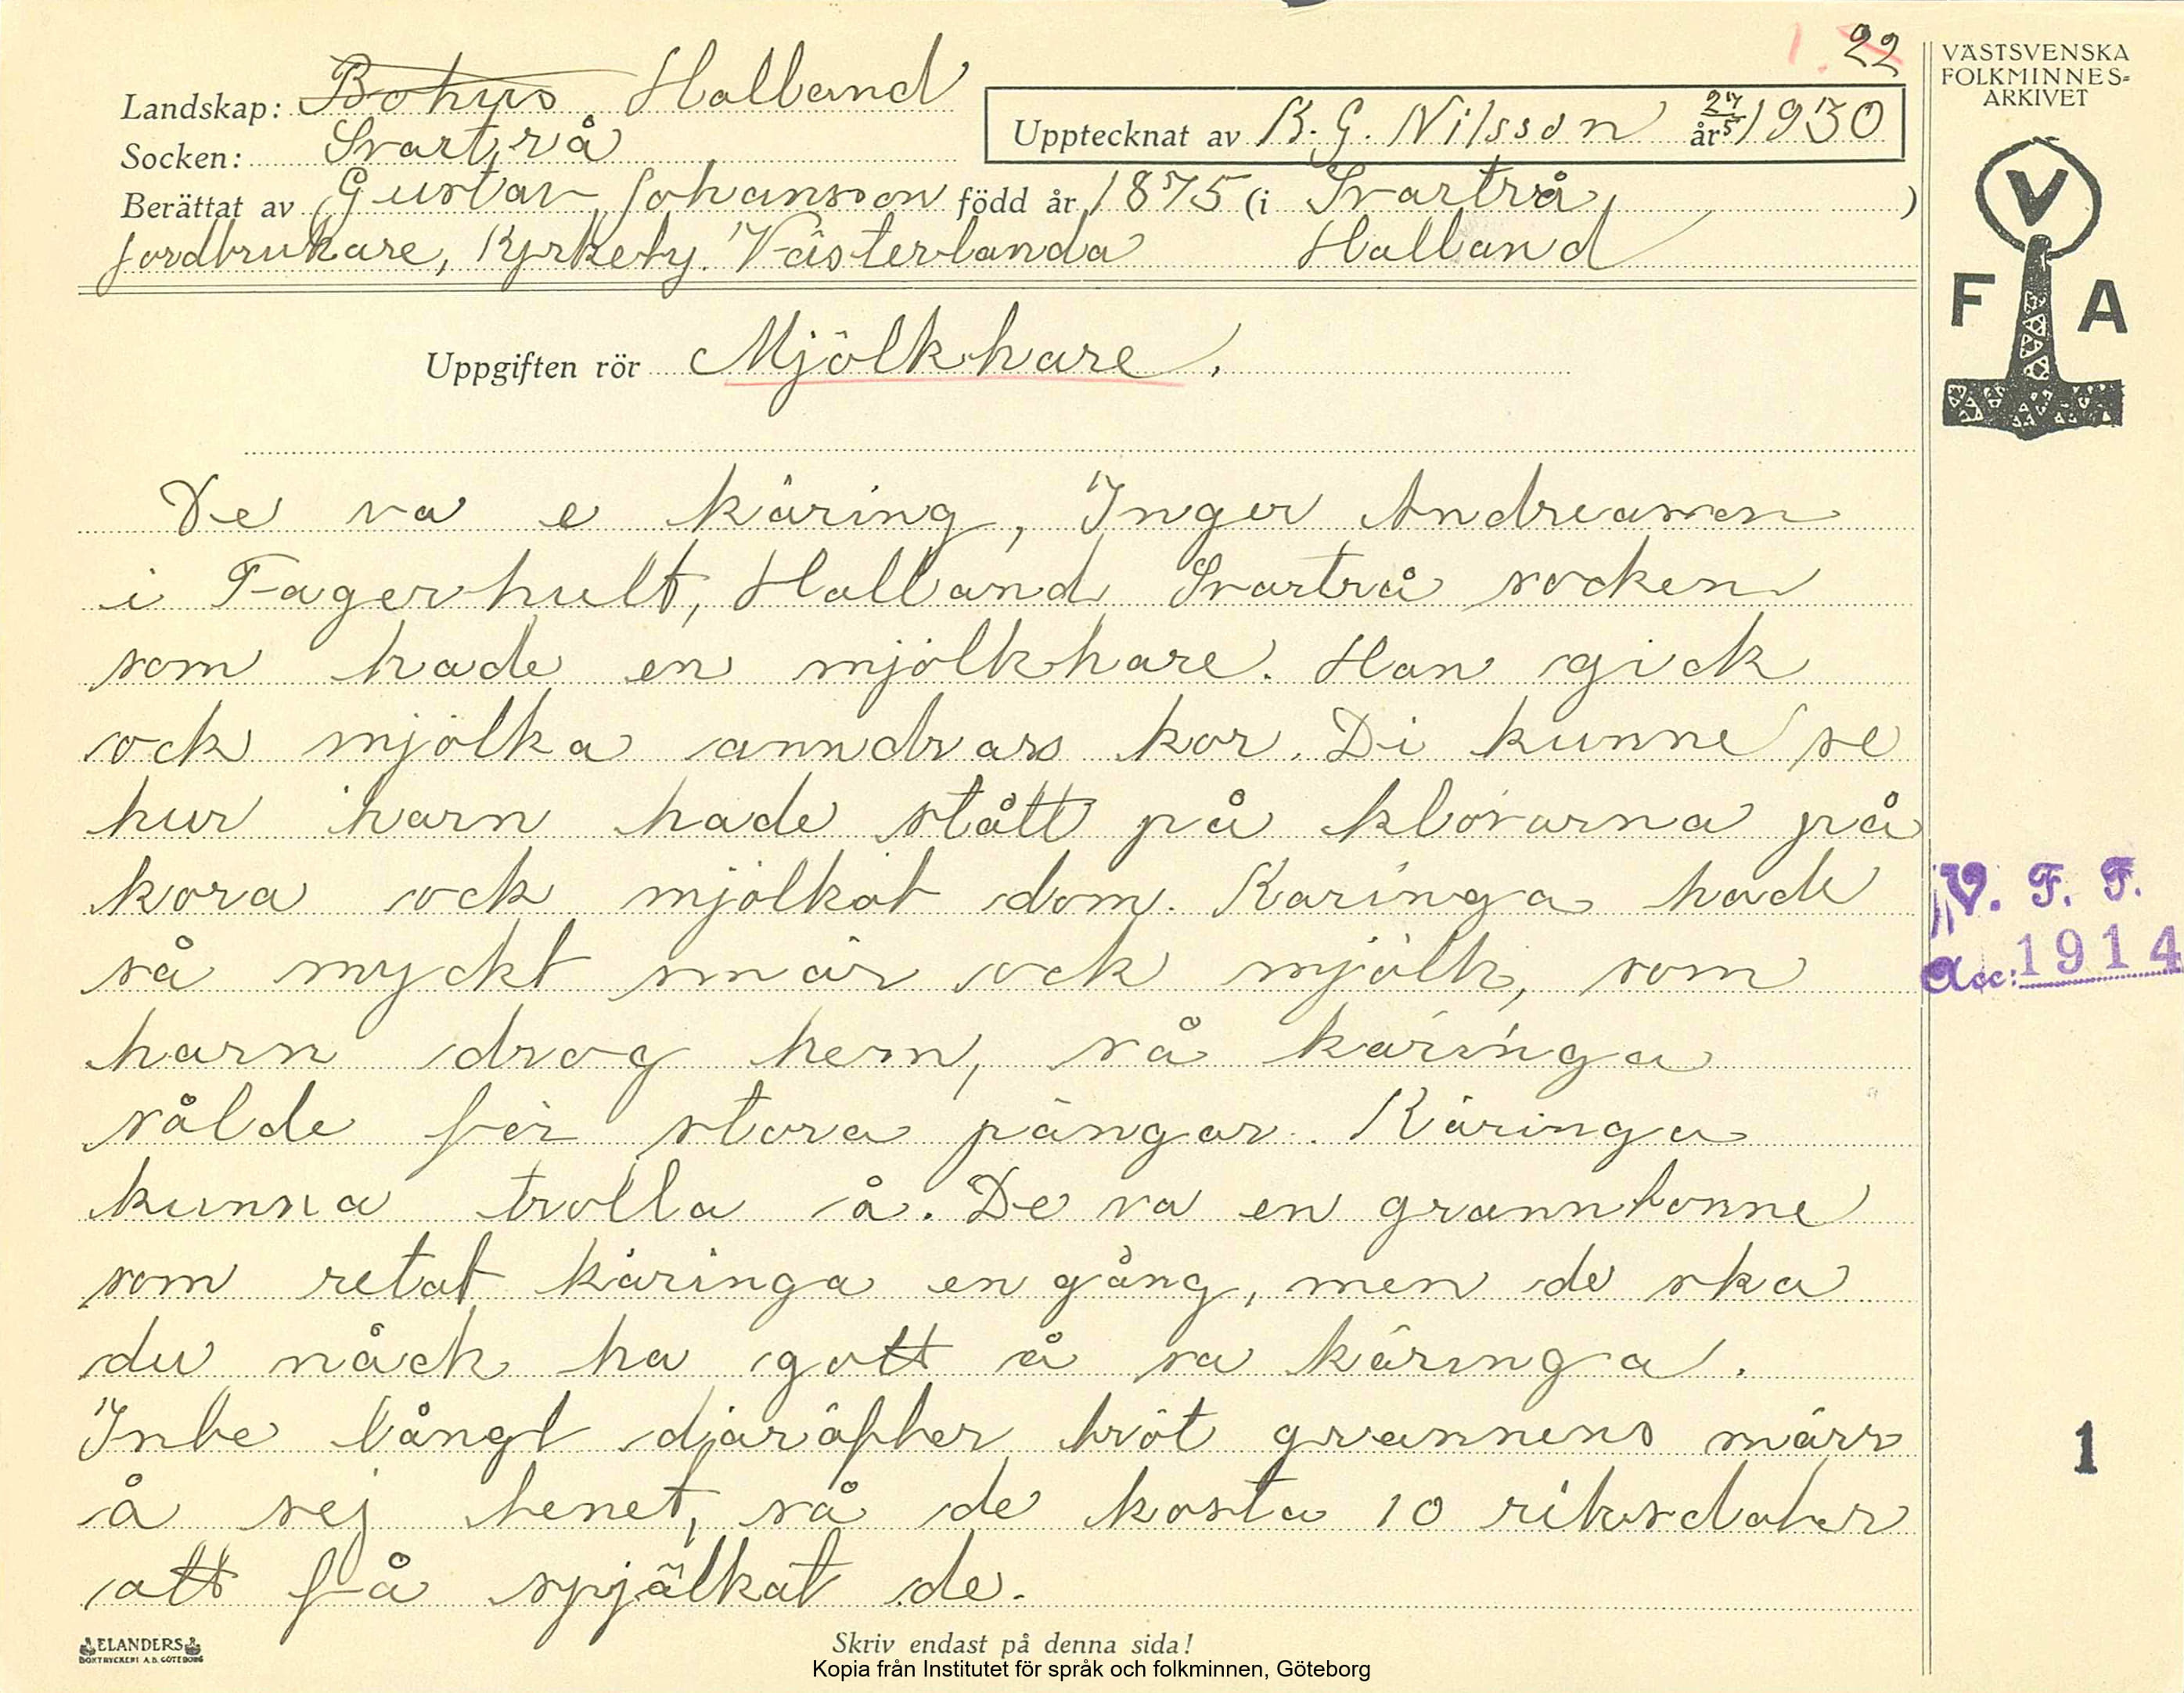 1. 22
Landskap: Bohus Halland
Socken: Svartrå
Upptecknat av K. G. Nilsson år 27/5 1930
Berättat av Gustav Johansson född år 1875 (i Svartrå, )
Jordbrukare, Kyrkeby. Västerlanda Halland
VÄSTSVENSKA
FOLKMINNES=
ARKIVET
V
F A
Uppgiften rör Mjölkhare.
De va e käring, Inger Andreasen
i Fagerhult, Halland Svartrå socken
som hade en mjölkhare. Han gick
ock mjölka anndras kor. Di kunne se
hur harn hade stått på klövarna på
kora ock mjölkat dom. Käringa hade
så myckt smör ock mjölk, som
harn drog hem, så käringa
sålde för stora pängar. Käringa
kunna trolla å. De va en grannbonne
som retat käringa en gång, men de ska
du nåck ha gott å sa käringa.
Inte långt djäräfter bröt grannens märr
å sej benet, så de kosta 10 riksdaler
att få spjälkat de.
V. F. F.
Acc: 1914
1
ELANDERS
BOKTRYCKERI A.B. GÖTEBORG
Skriv endast på denna sida!
Kopia från Institutet för språk och folkminnen, Göteborg